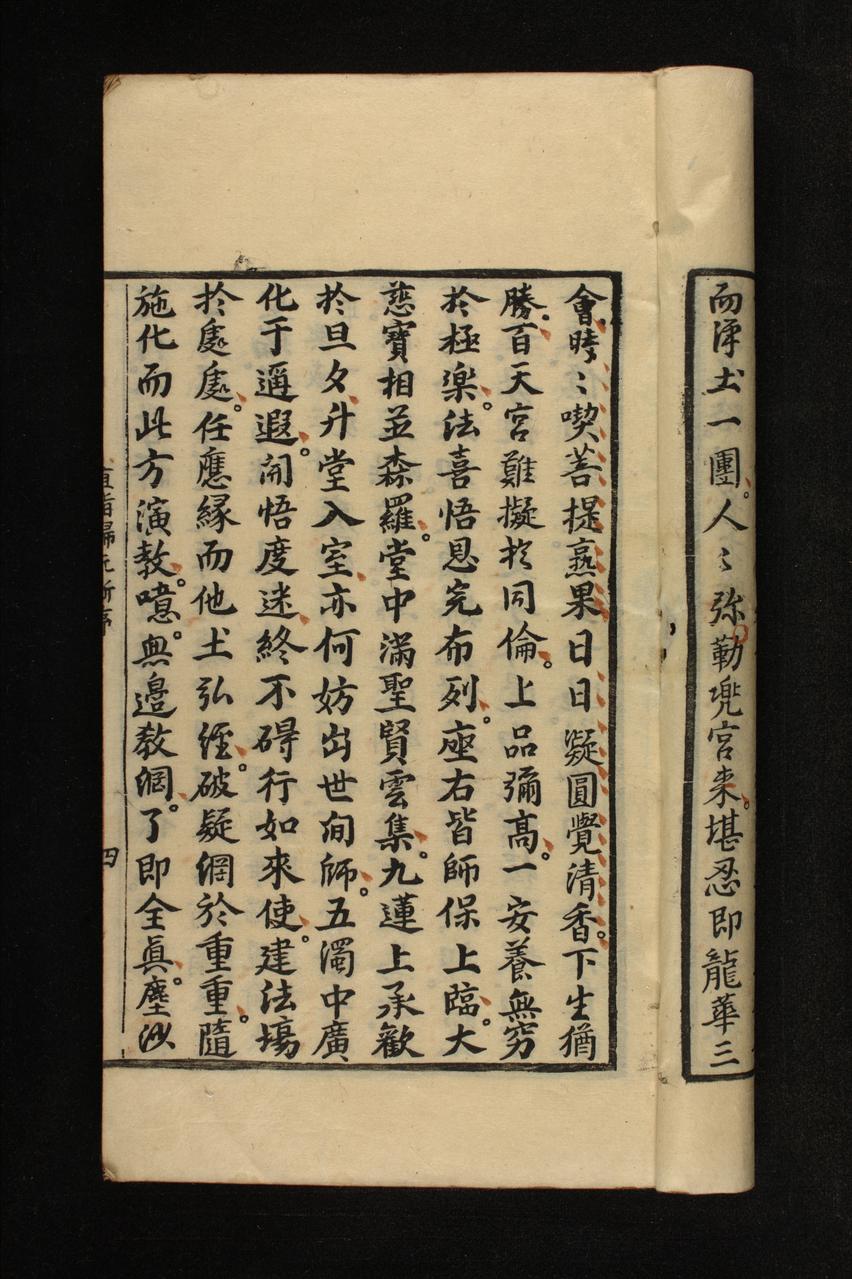 而淨土一團。人〻弥勒兠宮来。堪忍即龍華三
會時〻喫菩提熟果日日凝圓覺清香。下生猶
勝百天宮難擬扵同倫。上品彌髙。一安養無窮
扵極楽。法喜悟恩完布列。座右皆師保上臨。大
慈寶相並森羅。堂中滿聖賢雲集。九蓮上承歡
扵旦夕升堂入室亦何妨出世間師。五濁中廣
化于邇遐。開悟度迷終不碍行如來使。建法場
扵處處。任應縁而他土弘經。破疑網於重重。隨
施化而此方演教。噫。無邉教網。了即全真。塵沙
直指歸元新序
四